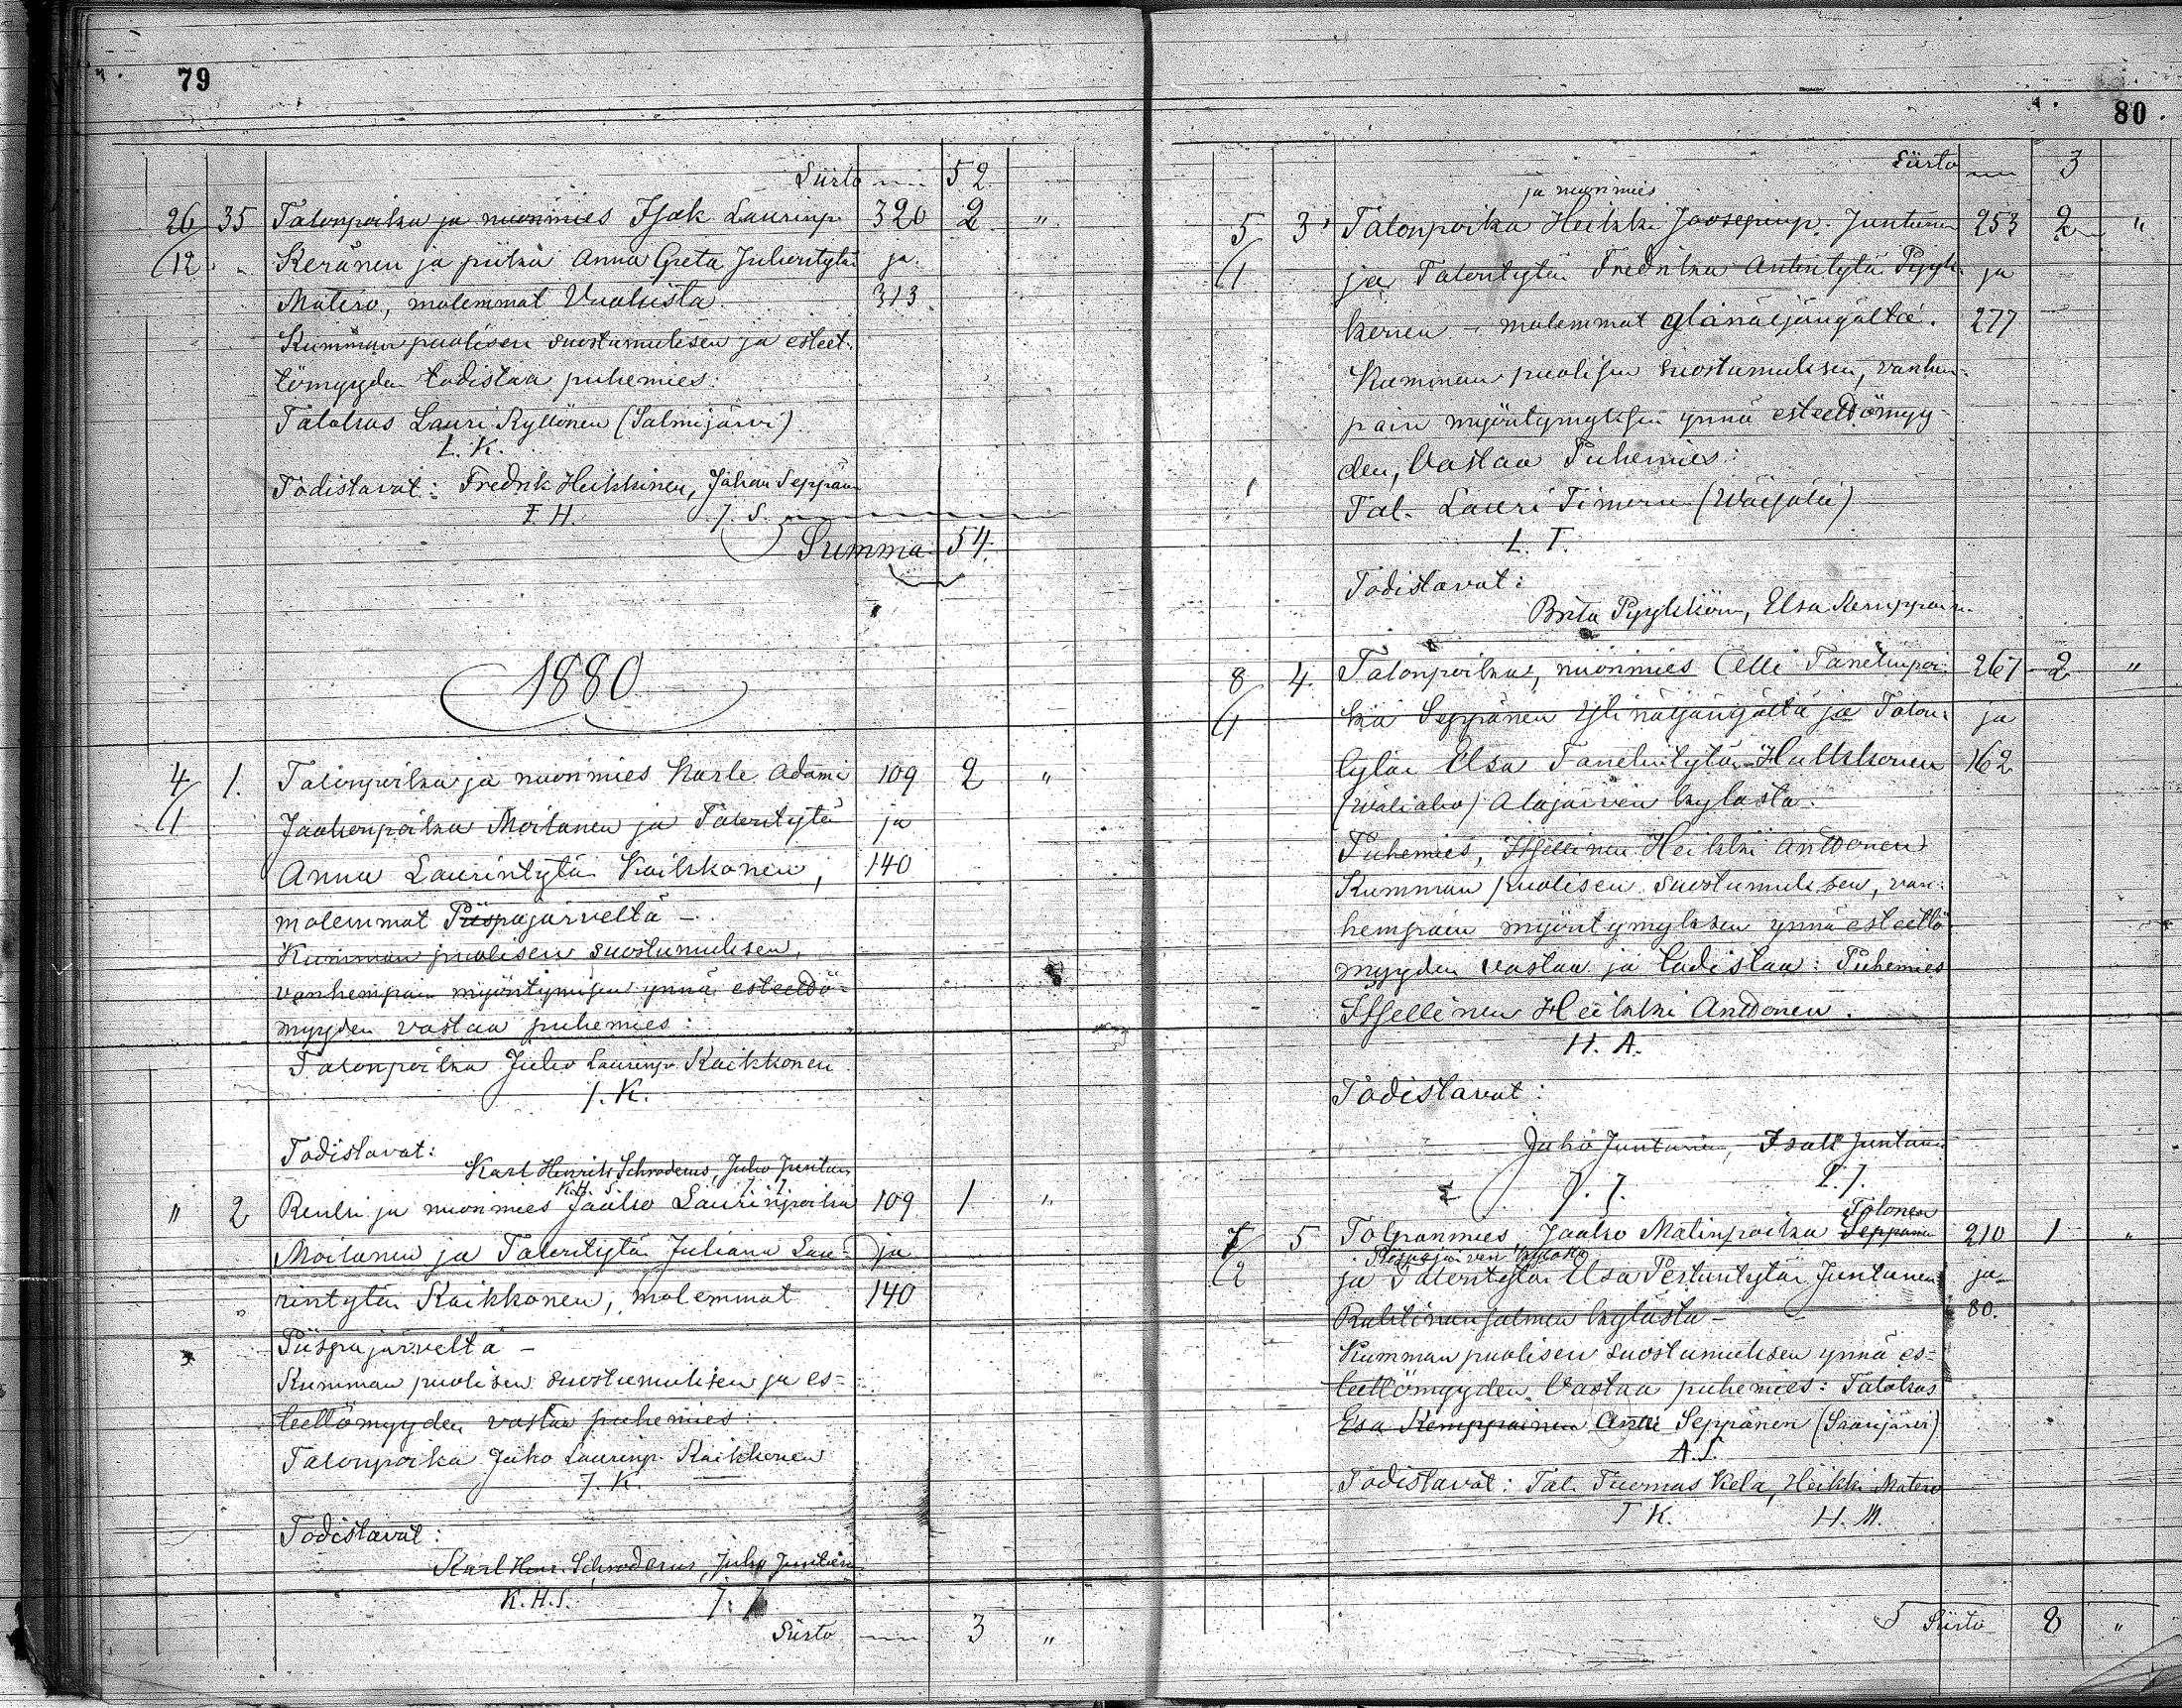 79
Siirto 52
26/12 35 Talonpoika ja nuorimies Isak Laurinp. 320 2 "
Keränen ja piika Anna Greta Juhontytär ja
Matero, molemmat Vuokista. 313
Kumman puolisen suostumuksen ja esteet-
tömyyden todistaa puhemies:
Talokas Lauri Kyllönen (Salmijärvi)
L. K.
Todistavat: Fredrik Heikkinen, Johan Seppän
F. H. J. S.
Summa 54
1880
4/1 1. Talonpoika ja nuorimies Karle Adami 109 2 "
Jaakonpoika Moilanen ja Talontytä ja
Anna Laurintytär Kaikkonen, 140
molemmat Piispajärveltä –
Kumman puolisen suostumuksen,
vanhempain myöntymisen ynnä esteettö-
myyden vastaa puhemies:
Talonpoika Juho Laurinp. Kaikkonen
J. K.
Todistavat:
Karl Henrik Schroderus, Juho Juntun
K.H. S. J. J.
" 2 Renki ja nuorimies Jaako Laurinpoika 109 1 "
Moilanen ja Talontytä Juliana Lau- ja
rintytär Kaikkonen, molemmat 140
Piispajärveltä –
Kumman puolisen suostumuksen ja es-
teettömyyden vastaa puhemies:
Talonpoika Juho Laurinp. Kaikkonen
J. K.
Todistavat:
Karl Henr. Schroderus, Juho Juntun
K. H. S. J. J.
Siirto 3 "
80
Siirto 3
ja nuorimies
5/1 3 Talonpoika Heikki Joosepinp. Juntunen 253 2 "
ja Talontytär Fredrika Antintytä Pyyk- ja
könen – molemmat Ylinäljängältä. 277
Kumman puolisen suostumuksen, vanhem-
pain myöntymyksen ynnä esteettömyy-
den, Vastaa Puhemies:
Tal. Lauri Timonen
L. T.
Todistavat:
Brita Pyykkön, Elsa Kemppain
8/1 4. Talonpoika, nuorimies Olli Tanelinpoi- 267 2 "
ka Seppänen Ylinäljängältä ja Talon- ja
tytär Elsa Tanelintytär Hulkkonen 162
(Väliaho) Alajärven kylästä.
Puhemies, Itsellinen Heikki Anttonen
Kumman puolisen suostumuksen, van-
hempain myöntymyksen ynnä esteettö-
myyden vastaa ja todistaa: Puhemies
Itsellinen Heikki Anttonen.
H. A.
Todistavat:
Juho Juntunen, Isak Juntun
J. J. I. J.
Tolonen
7/2 5 Tolpanmies, Jaako Matinpoika Seppänen 210 1 "
Piispajärven kylästä
ja Talontytär Elsa Pekantytär Juntunen ja
Ruhtinansalmen kylästä – 80.
Kumman puolisen suostumuksen ynnä es-
teettömyyden Vastaa puhemies: Talokas
Esa Kemppainen Antti Seppänen (Saarijärvi)
A. S.
Todistavat: Tal. Tuomas Kela, Heikki Matero
T K. H. M.
5 Siirto 8 "